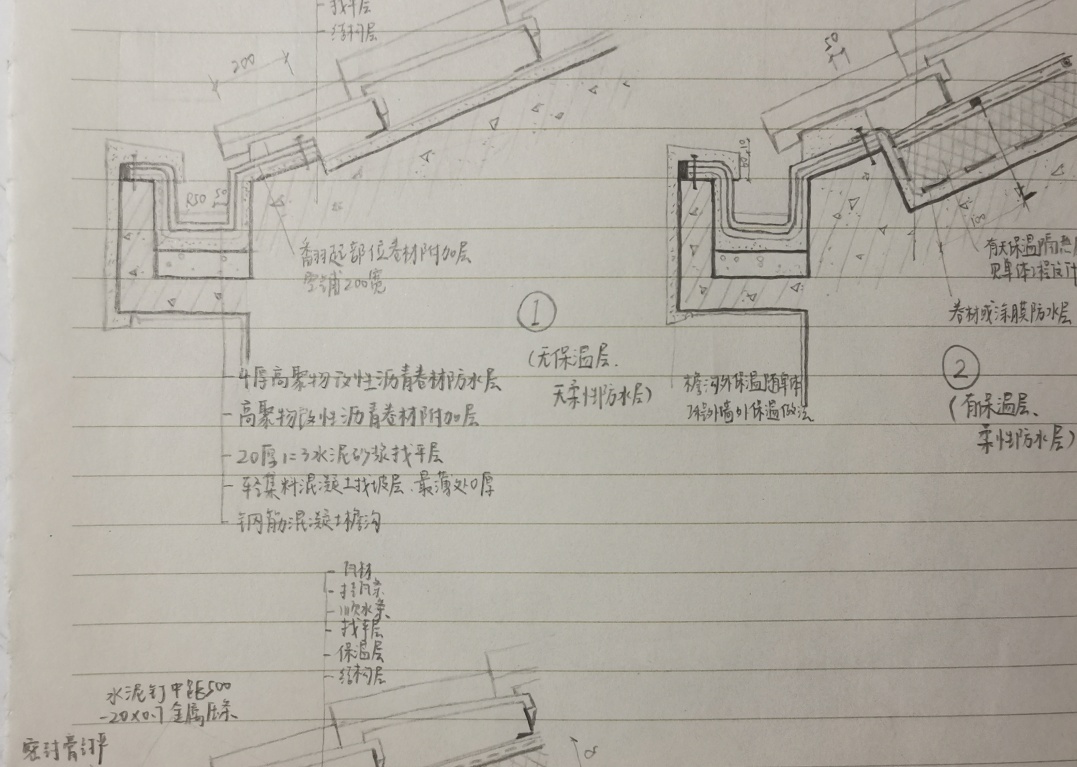 找平层
结构层
200
50
R50
50
翻起部位卷材附加层
空铺200宽
①
(无保温层、
无柔性防水层)
4厚高聚物改性沥青卷材防水层
高聚物改性沥青卷材附加层
20厚1:3水泥砂浆找平层
轻集料混凝土找坡层,最薄处0厚
钢筋混凝土檐沟
檐沟外保温随单体
工程外墙外保温做法
有无保温隔热
见单体工程设计
卷材或涂膜防水层
②
(有保温层、
柔性防水层)
瓦材
挂瓦条
顺水条
找平层
保温层
结构层
水泥钉中距500
-20x0.7金属压条
密封膏封严
α